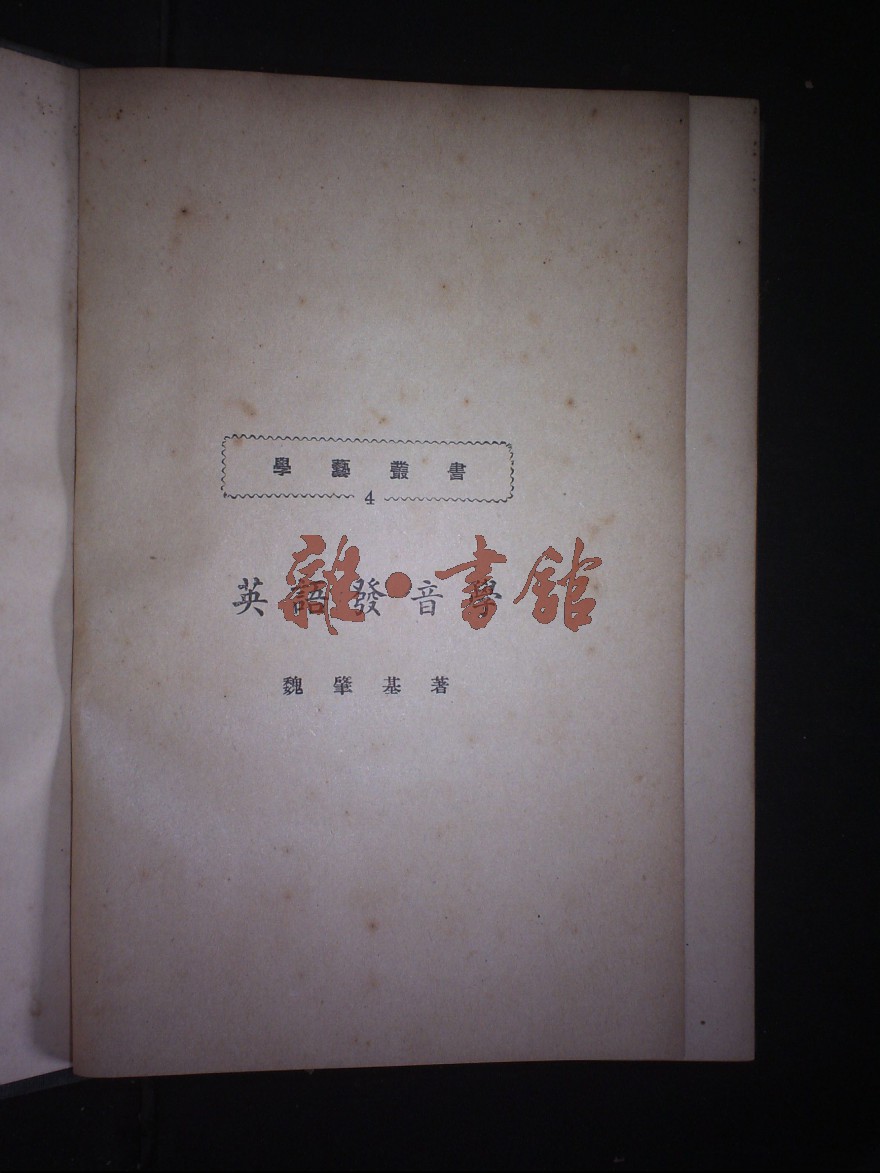 學藝叢書
4
英語發音學
雜·書館
魏肇基著